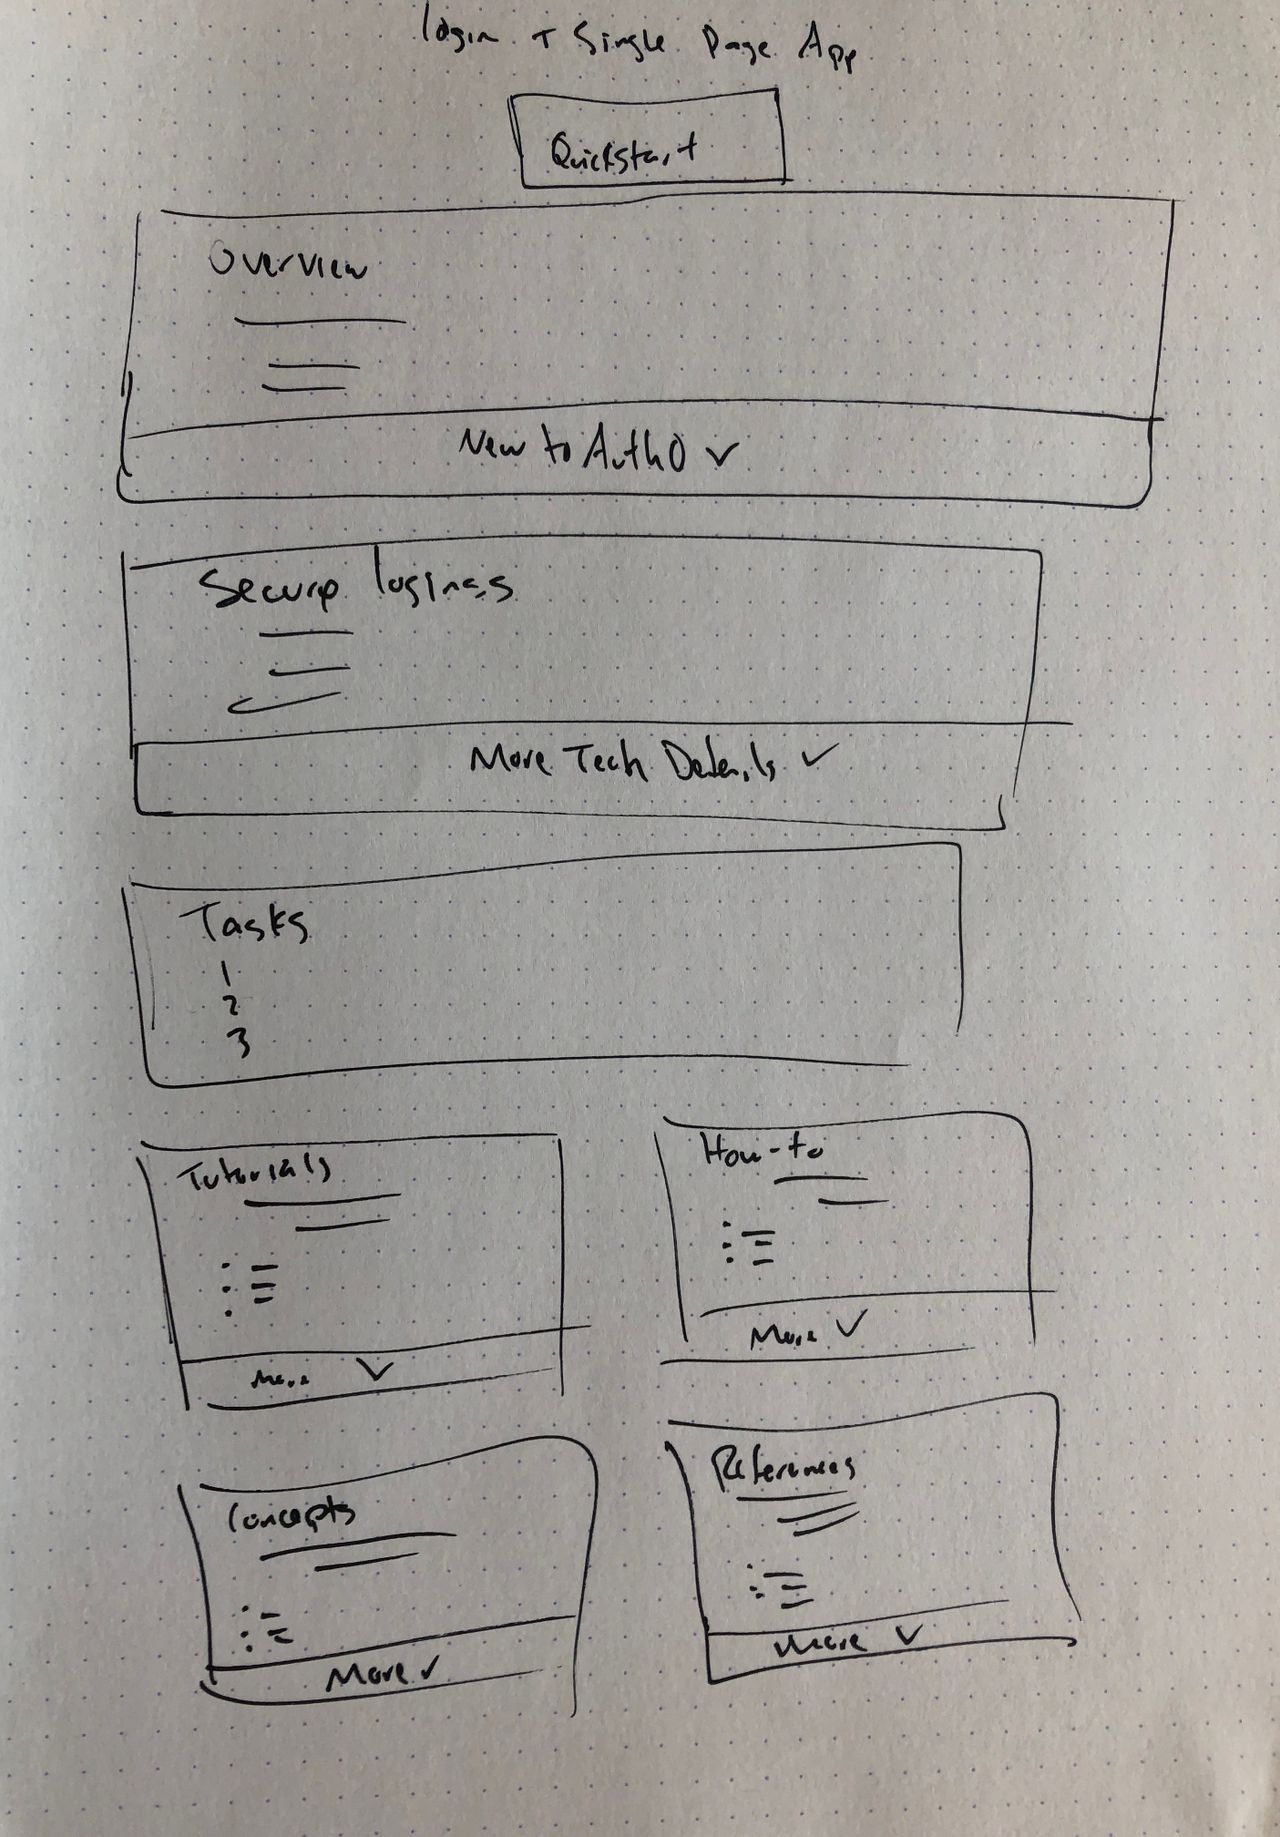 Login + Single Page App
Quickstart
Overview
New to Auth0
Secure
More Tech Details
Tasks
1
2
3
Tutorials
More
How-to
More
Concepts
More
References
More